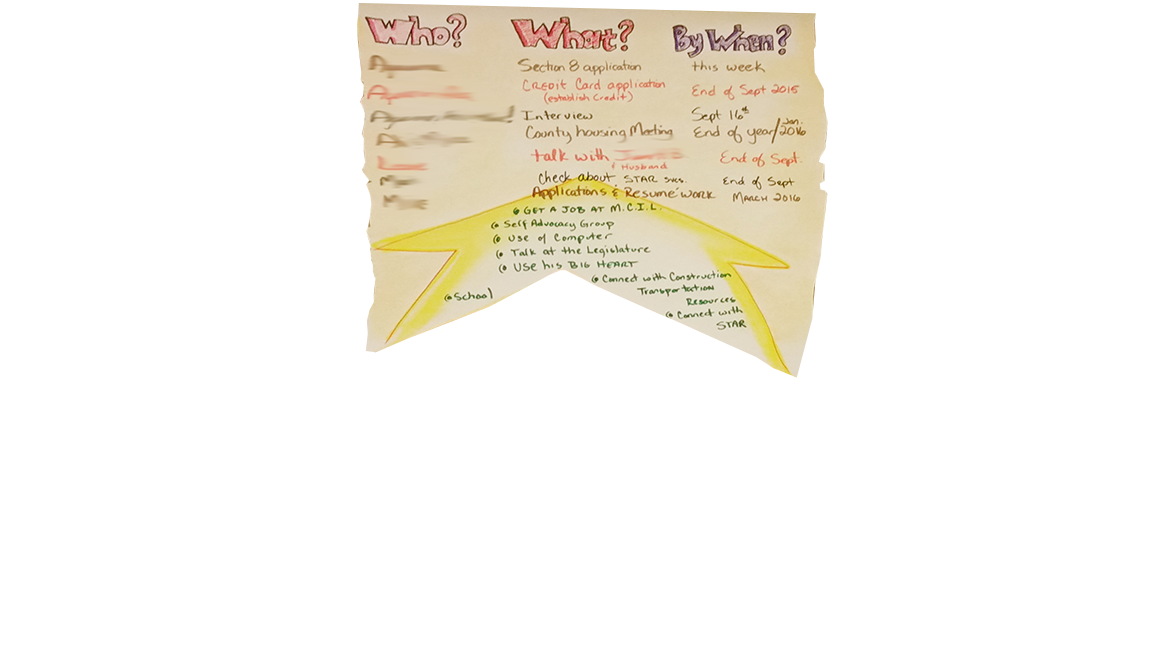 Who? What? By When?
Section 8 application this week
CREDIT Card application End of Sept 2015
(establish credit)
Interview Sept 16th
County housing Meeting End of year/Jan. 2016
talk with End of Sept.
& Husband
Check about STAR svcs. End of Sept
Applications & Resume' work MARCH 2016
GET A JOB AT M.C.I.L.
Self Advocacy Group
Use of Computer
Talk at the Legislature
Use his BIG HEART
Connect with Construction
Transportation
Resources
School
Connect with
STAR